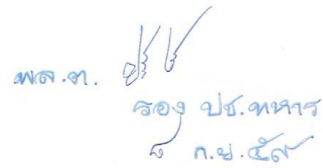 พล.ต.
รอง ปช.ทหาร
๘ ก.ย. ๕๙